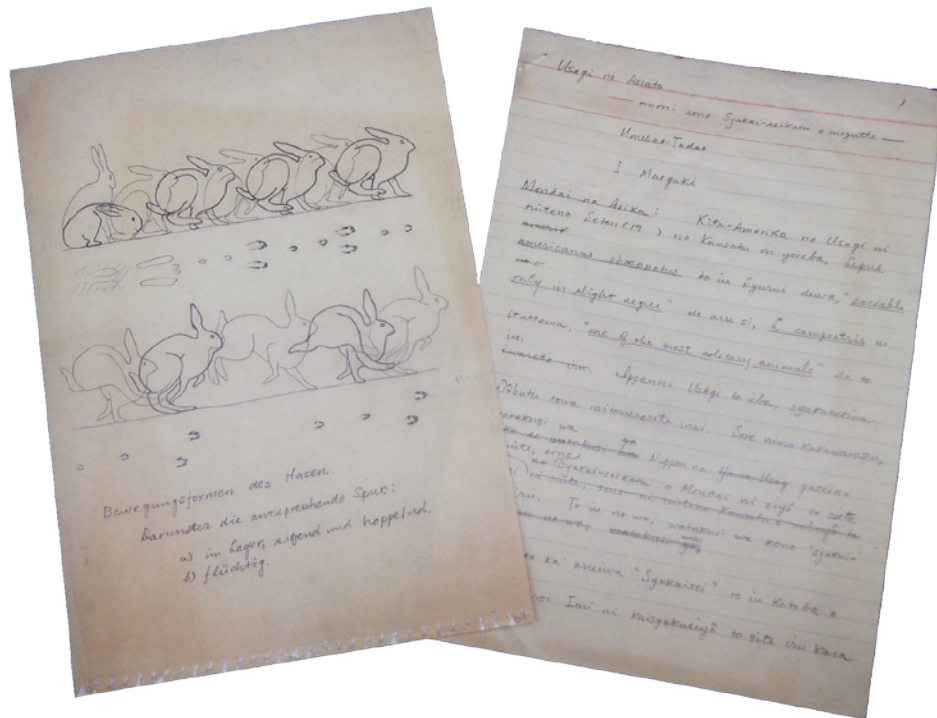 Bewegungsformen des Hasen.
Darunter die entsprechende Spur:
a) im Lager, sitzend und hoppelnd,
b) flüchtig.
Usagi no Asiato
1
— omoni sono Syakai-seikatu o megutte —
Umesao Tadao
I Maegaki
Mondai no Arika: Kita-Amerika no Usagi ni
tuiteno Seton(19 ) no Kansatu ni yoreba, Lepus
americanus phaeonotus to iu Syurui dewa, "sociable
only in slight degree" de aru si, L. campestris ni
itattewa, "one of the most solitary animals" da to
iwarete iru. Ippanni Usagi to ieba, syakaitekina
Dôbutu towa mitomerarete inai. Sore nimo kakawarazu,
watakusi wa ga
Nippon no Usagi
no Syakai-seikatu o Mondai ni siyô to site
iru. To iu no wa, watakusi wa kono "syakai-
ka: aruiwa "Syakaisei" to iu Kotoba o
Imi ni kaisyakusiyô to site iru kara